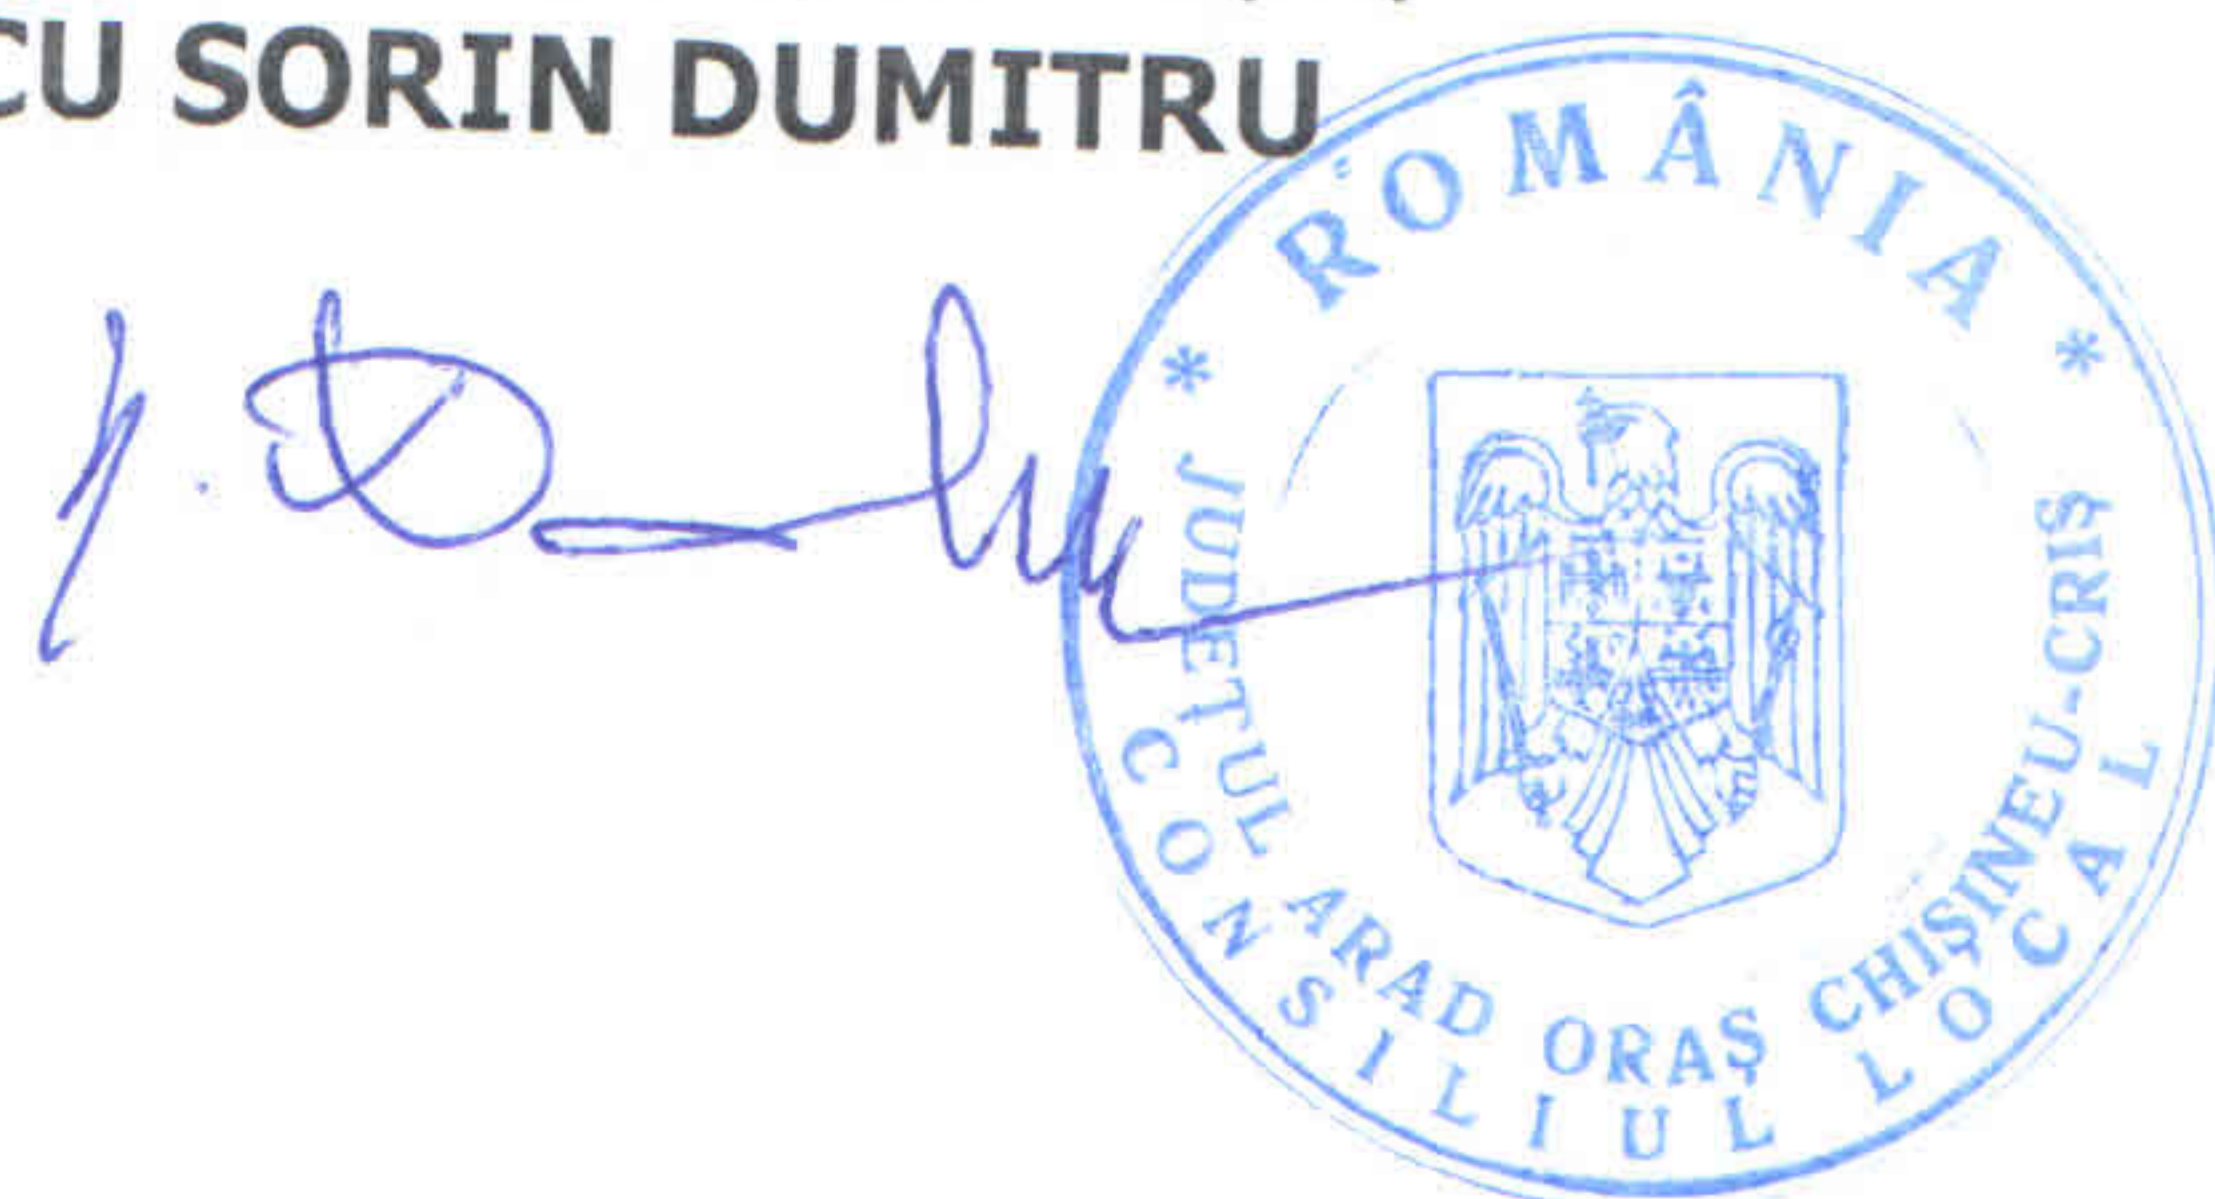 CU SORIN DUMITRU
* ROMÂNIA *
JUDEŢUL ARAD ORAŞ CHIŞINEU-CRIŞ
CONSILIUL LOCAL